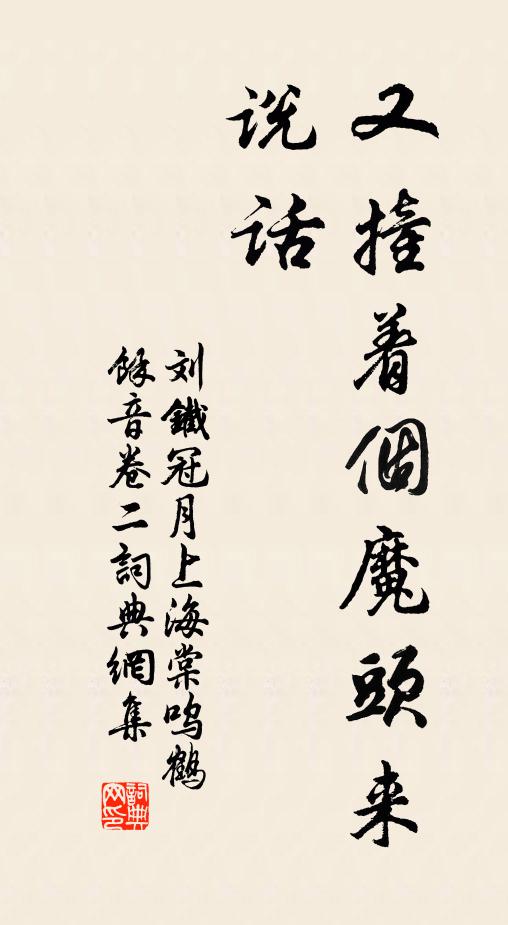 又撞着個魔頭来
说话
刘鐵冠月上海棠鸣鶴
餘音卷二詞典網集
詞典
网印